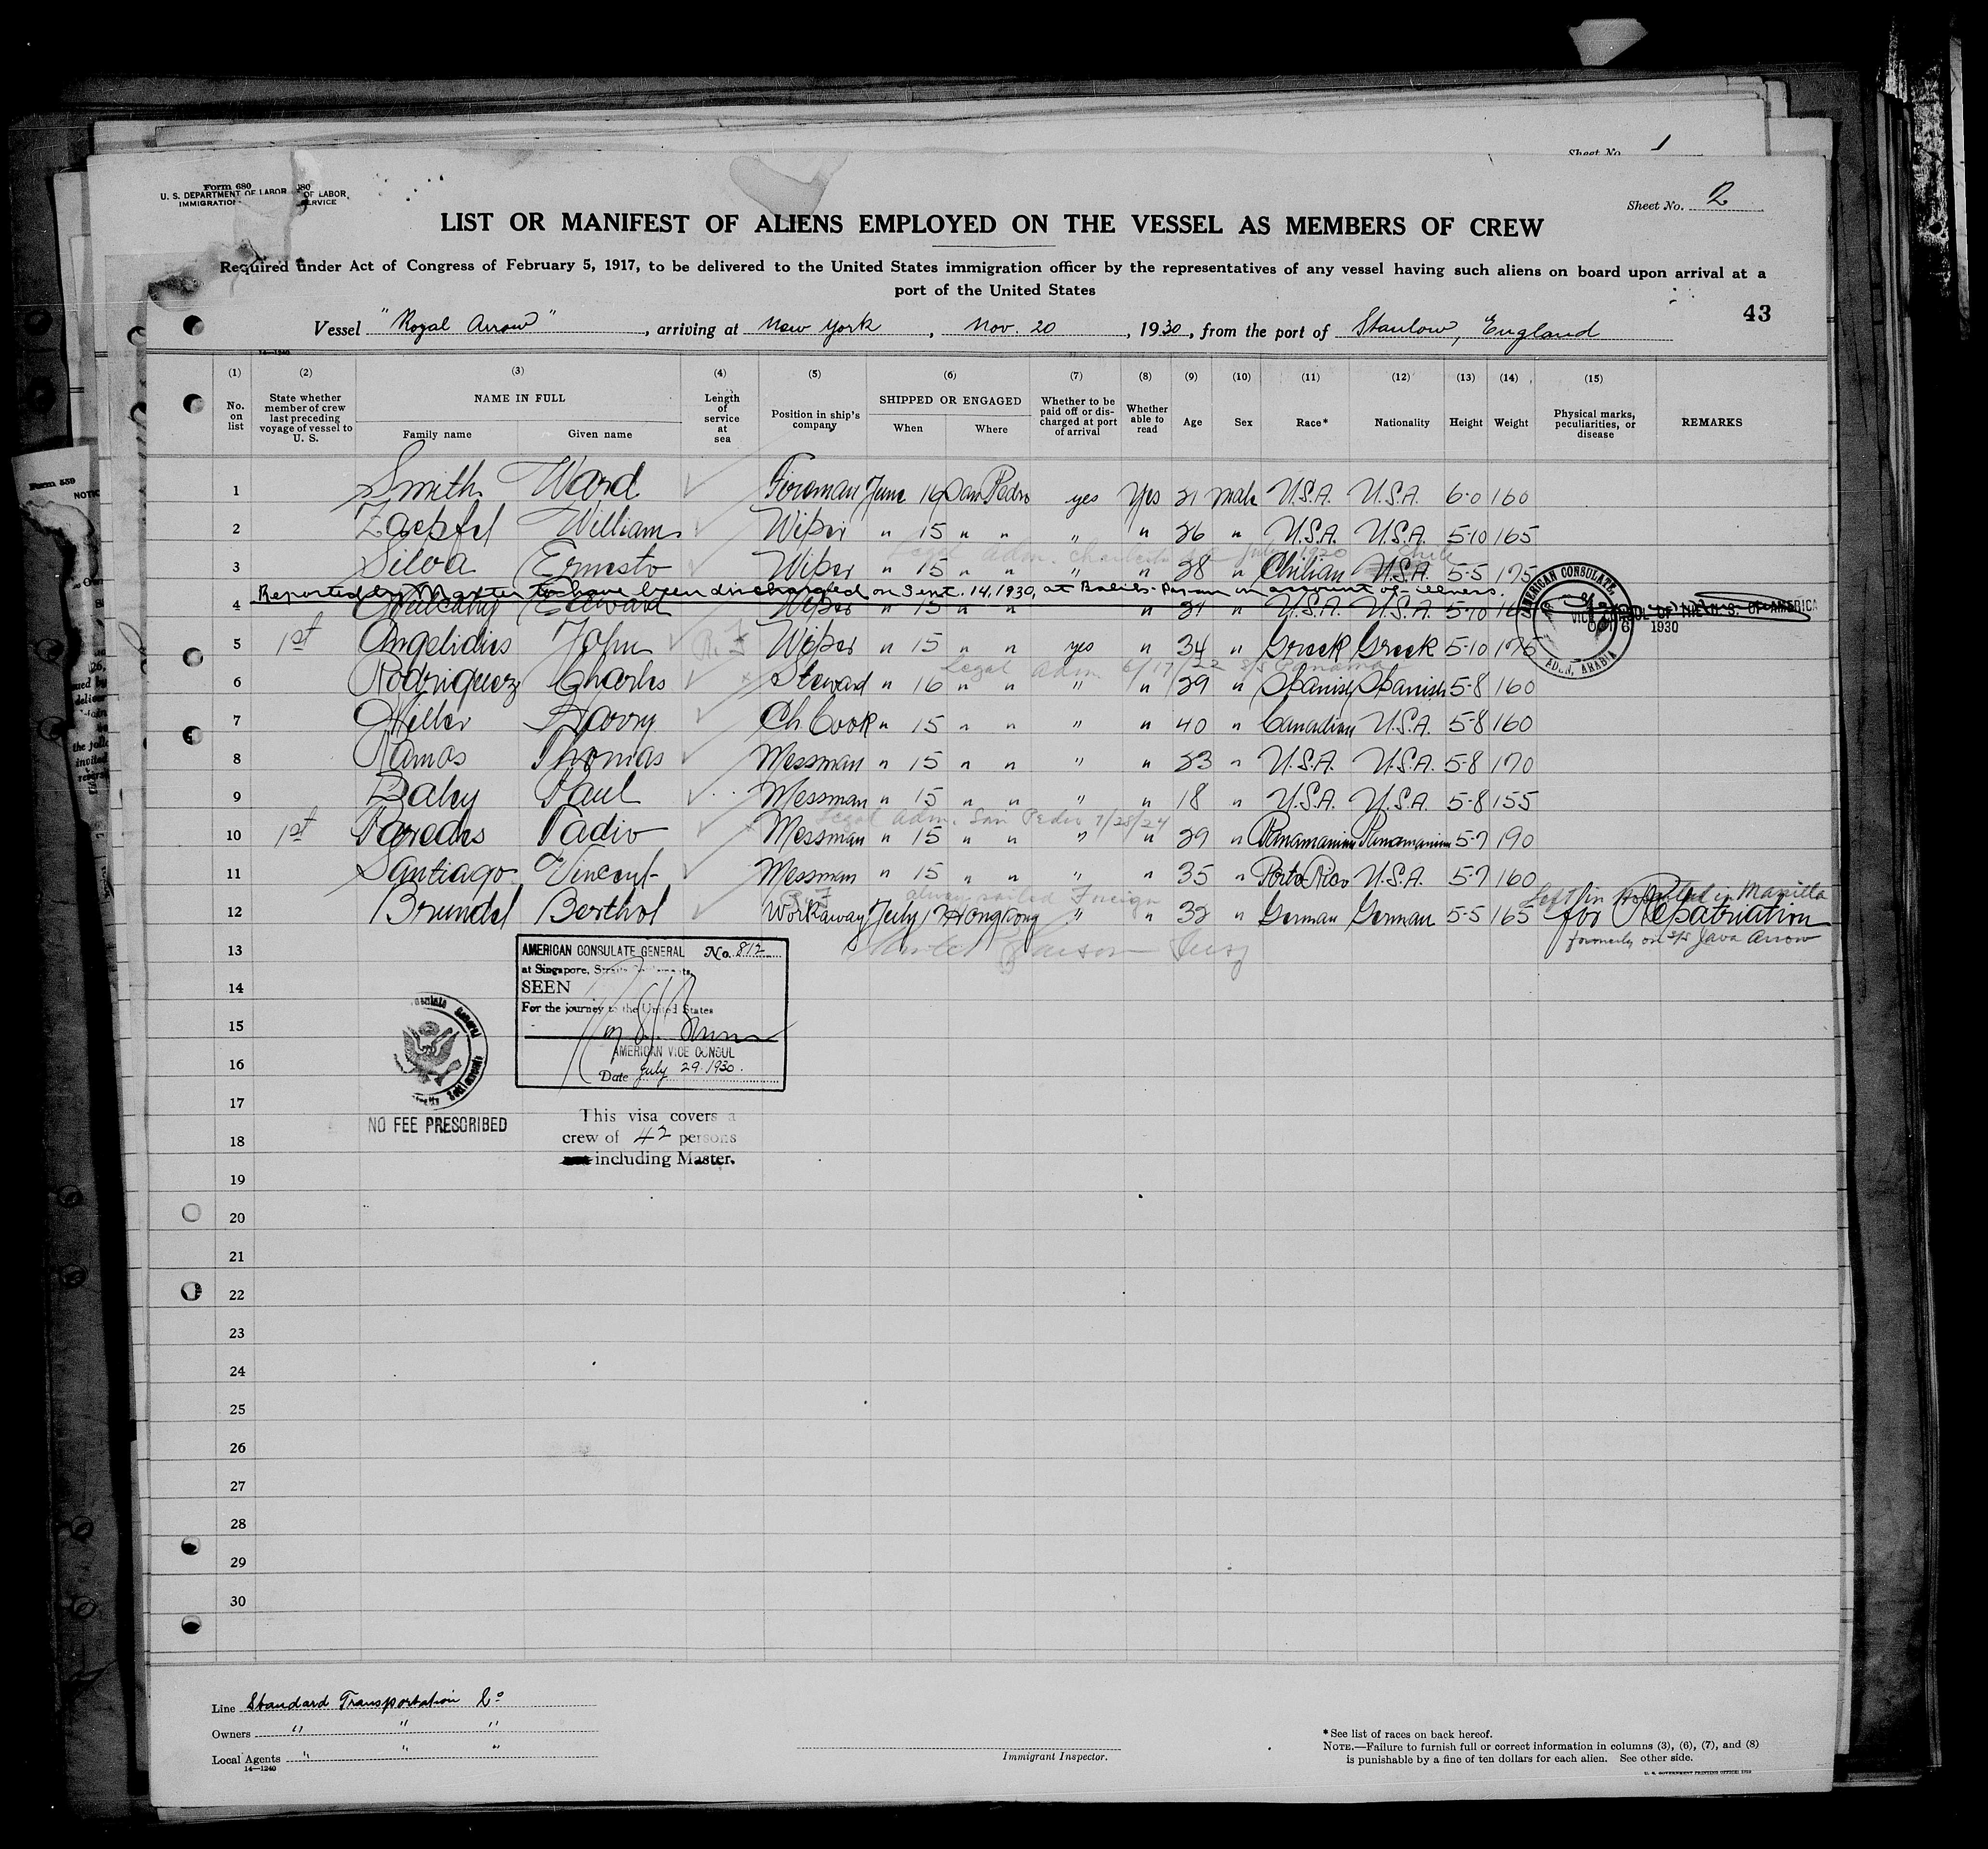 Sheet No. 1
Form 680
U. S. DEPARTMENT OF LABOR
IMMIGRATION SERVICE
Sheet No. 2
LIST OR MANIFEST OF ALIENS EMPLOYED ON THE VESSEL AS MEMBERS OF CREW
Required under Act of Congress of February 5, 1917, to be delivered to the United States immigration officer by the representatives of any vessel having such aliens on board upon arrival at a
port of the United States
43
Vessel "Royal Arrow", arriving at New York, Nov. 20, 1930, from the port of Stanlow, England
14—1240
(1) (2) (3) (4) (5) (6) (7) (8) (9) (10) (11) (12) (13) (14) (15)
No. on list
State whether member of crew last preceding voyage of vessel to U. S.
NAME IN FULL
Family name Given name
Length of service at sea
Position in ship's company
SHIPPED OR ENGAGED
When Where
Whether to be paid off or discharged at port of arrival
Whether able to read
Age Sex Race* Nationality Height Weight
Physical marks, peculiarities, or disease
REMARKS
1 Smith Ward Fireman June 16 San Pedro yes Yes 21 male U.S.A. U.S.A. 6-0 160
2 Zaepfel William Wiper " 15 " " " " 26 " U.S.A. U.S.A. 5-10 165
Legal adm. July 1930 Chile
3 Silva Ernesto Wiper " 15 " " " " 28 " Chilian U.S.A. 5-5 175
Reported by Master to have been discharged on Sept. 14, 1930, at on account of illness.
4 Mulcahy Edward Wiper " 15 " " " 21 " U.S.A. U.S.A. 5-10
5 1st Angelidis John Wiper " 15 " " yes " 34 " Greek Greek 5-10 175
Legal adm 6/17/22 S/S Panama
6 Rodriguez Charles Steward " 16 " " " " 29 " Spanish Spanish 5-8 160
7 Hiller Harry Ch. Cook " 15 " " " " 40 " Canadian U.S.A. 5-8 160
8 Ramos Thomas Messman " 15 " " " " 23 " U.S.A. U.S.A. 5-8 170
9 Daley Paul Messman " 15 " " " " 18 " U.S.A. U.S.A. 5-8 155
Legal adm. San Pedro 7/28/24
10 1st Paredes Padio Messman " 15 " " " " 29 " Panamanian Panamanian 5-7 190
11 Santiago Vincent Messman " 15 " " " " 35 " Porto Rico U.S.A. 5-7 160
always sailed Foreign
Left in Hospital in Manilla
12 Brundel Berthol Workaway July 17 Hong Kong " " 32 " German German 5-5 165 for Repatriation
formerly on S/S Java Arrow
13
14
15
16
17
18
19
20
21
22
23
24
25
26
27
28
29
30
AMERICAN CONSULATE,
ADEN, ARABIA
VICE CONSUL OF THE U. S. OF AMERICA
OCT 6 1930
AMERICAN CONSULATE GENERAL No. 812
at Singapore, Straits Settlements
SEEN
For the journey to the United States
AMERICAN VICE CONSUL
Date July 29. 1930.
NO FEE PRESCRIBED
This visa covers a
crew of 42 persons
including Master.
Line Standard Transportation Co
Owners " " "
Local Agents " " "
14—1240
Immigrant Inspector.
* See list of races on back hereof.
NOTE.—Failure to furnish full or correct information in columns (3), (6), (7), and (8)
is punishable by a fine of ten dollars for each alien. See other side.
U. S. GOVERNMENT PRINTING OFFICE:
Form 559
NOTIC